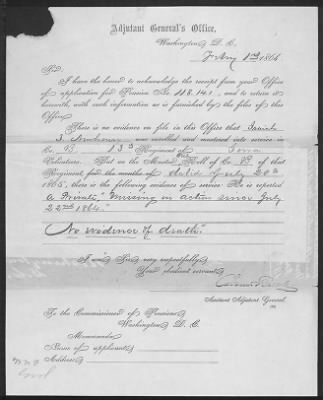 Adjutant General's Office,
Washington, D. C.
1st 1866
Sir:
I have the honor to acknowledge the receipt from your Office
of application for Pension No. 118.141, and to return it
herewith, with such information as is furnished by the files of this
Office.
There is no evidence on file in this Office that
S. was enrolled and mustered into service in
Co. B, 13th Regiment of Iowa
Volunteers. But on the Muster Roll of Co. of that
Regiment, for the months of dated July 20th
1865, there is the following evidence of service: He is reported
a Private "Missing in action since July
22nd 1864."
No evidence of death."
I am, Sir, very respectfully,
Your obedient servant,
Assistant Adjutant General.
To the Commissioner of Pensions,
Washington, D. C.
Memoranda
Name of applicant
Address